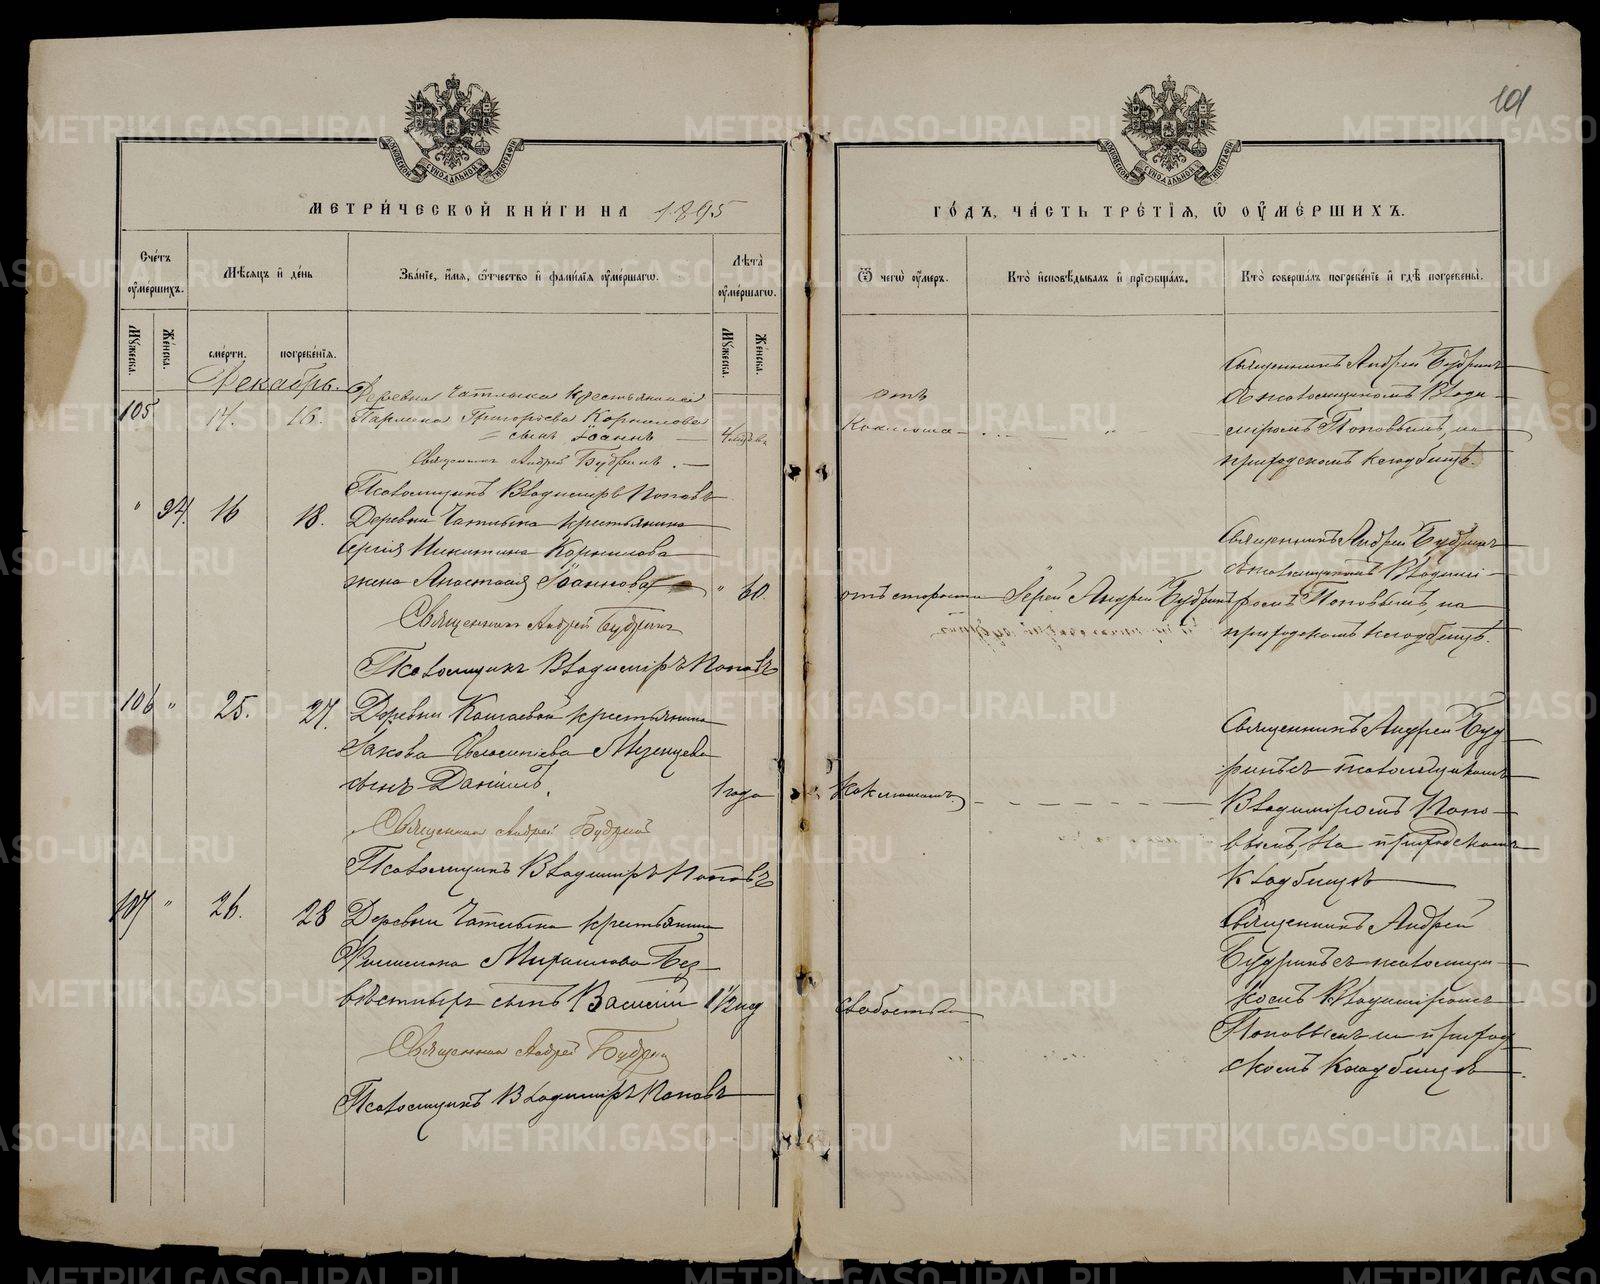 101
МОСКОВСКОЙ СѴНОДАЛЬНОЙ ТИПОГРАФІИ
МОСКОВСКОЙ СѴНОДАЛЬНОЙ ТИПОГРАФІИ
МЕТРИ́ЧЕСКОЙ КНИ́ГИ НА 1895
ГО́ДЪ, ЧА́СТЬ ТРЕ́ТІѦ, Ѡ҆ ОУ҆МЕ́РШИХЪ.
Сче́тъ оу҆ме́ршихъ.
Мѣ́сяцъ и҆ де́нь
Зва́ніе, и҆́мя, ѻ҆́тчество и҆ фами́лія оу҆ме́ршагѡ.
Лѣ́та оу҆ме́ршагѡ.
Ѿ чегѡ̀ оу҆́меръ.
Кто̀ и҆сповѣ́дывалъ и҆ прїѡбща́лъ.
Кто̀ соверша́лъ погребе́ніе и҆ гдѣ̀ погребены̀.
Мꙋ́жеска.
Же́нска.
сме́рти.
погребе́нія.
Мꙋ́жеска.
Же́нска.
Декабрь.
105 14. 16.
Деревни Чатлыка крестьянина
Пармена Григорьева Корнилова
сынъ Іоаннъ
Священникъ Андрей Будринъ.
Псаломщикъ Владиміръ Поповъ
отъ
Коклюша
Священникъ Андрей Будринъ
съ псаломщикомъ Влади-
міромъ Поповымъ, на
приходскомъ кладбищѣ.
" 94. 16 18.
Деревни Чатлыка крестьянина
Сергія Никитина Корнилова
жена Анастасія Іоаннова
" 60.
Священникъ Андрей Будринъ
Псаломщикъ Владиміръ Поповъ
отъ старости
Іерей Андрей Будринъ
Священникъ Андрей Будринъ
съ псаломщикомъ Владимі-
ромъ Поповымъ, на
приходскомъ кладбищѣ.
106 " 25. 27.
Деревни Кошаевой крестьянина
Іакова Мезенцева
сынъ Даніилъ.
1 года
Священникъ Андрей Будринъ
Псаломщикъ Владиміръ Поповъ
Коклюшемъ
Священникъ Андрей Буд-
ринъ съ псаломщикомъ
Владиміромъ Попо-
вымъ, на приходскомъ
кладбищѣ
107 " 26. 28
Деревни Чатлыка крестьянина
Филимона Михаилова Без-
вѣстныхъ сынъ Василій
1 1/2 год
Священникъ Андрей Будринъ
Псаломщикъ Владиміръ Поповъ
слабости
Священникъ Андрей
Будринъ съ псаломщи-
комъ Владиміромъ
Поповымъ на приход-
скомъ кладбищѣ.
METRIKI.GASO-URAL.RU